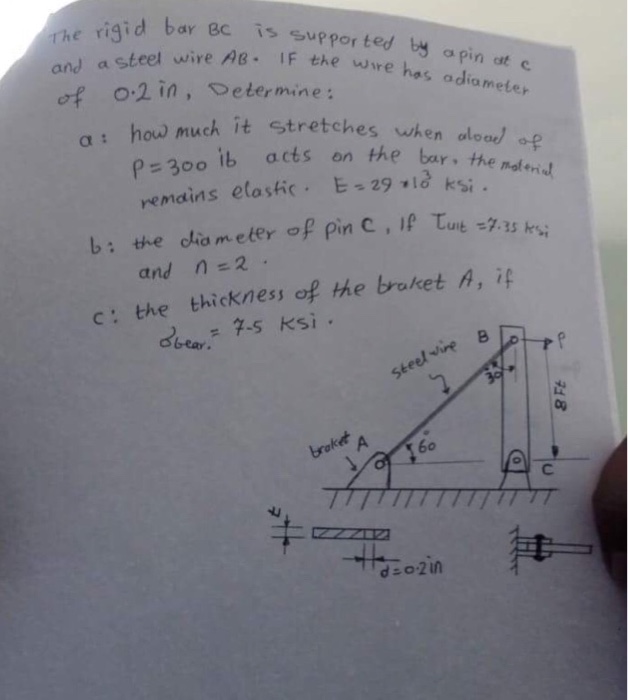 The rigid bar BC is supported by a pin at c
and a steel wire AB. IF the wire has a diameter
of 0.2 in, Determine:
a: how much it stretches when aload of
P=300 ib acts on the bar. the material
remains elastic. E=29*10³ ksi.
b: the diameter of pin C, if τult =7.35 ksi
and n=2.
c: the thickness of the braket A, if
σbear. = 7.5 ksi.
B P
steel wire
30°
8 Ft
braket A
60°
C
t
d=0.2in